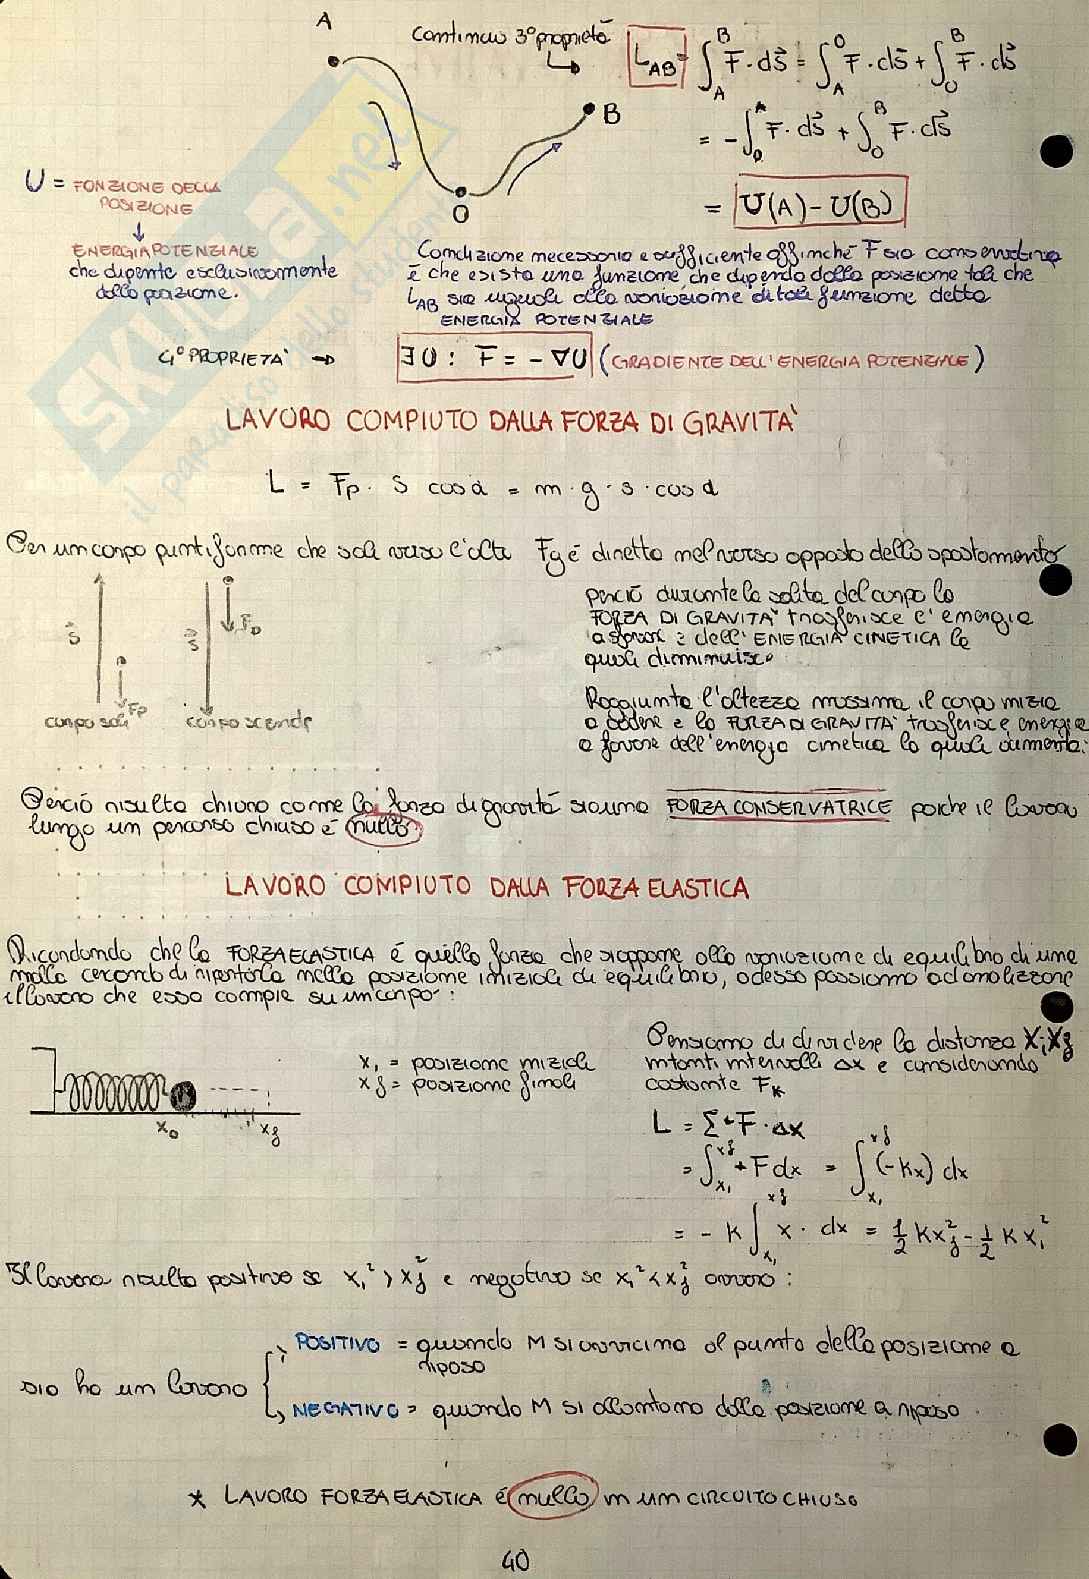 A
continuo 3° proprietà
L_AB = ∫_A^B F · ds = ∫_A^O F · ds + ∫_O^B F · ds
B
= - ∫_O^A F · ds + ∫_O^B F · ds
O
= U(A) - U(B)
U = FUNZIONE DELLA
POSIZIONE
ENERGIA POTENZIALE
che dipente esclusivamente
dalla posizione.
Condizione necessaria e sufficiente affinché F sia conservativa
è che esista una funzione, che dipenda dalla posizione tale che
L_AB sia uguale alla variazione di tale funzione detta
ENERGIA POTENZIALE
4° PROPRIETA' → ∃ U : F = - ∇U (GRADIENTE DELL'ENERGIA POTENZIALE)
LAVORO COMPIUTO DALLA FORZA DI GRAVITA'
L = Fp · s cos α = m · g · s · cos α
Per un corpo puntiforme che sale verso l'alto Fg è diretta nel verso opposto dello spostamento
perciò durante la salita del corpo la
FORZA DI GRAVITA' trasferisce l'energia
a sfavore dell'ENERGIA CINETICA la
quale diminuisce
s Fp
s Fp
corpo sale corpo scende
Raggiunta l'altezza massima il corpo inizia
a cadere e la FORZA DI GRAVITA' trasferisce energia
a favore dell'energia cinetica la quale aumenta.
Perciò risulta chiaro come la forza di gravità sia una FORZA CONSERVATRICE poiche il lavoro
lungo un percorso chiuso è nullo
LAVORO COMPIUTO DALLA FORZA ELASTICA
Ricordando che la FORZA ELASTICA è quella forza che si oppone alla variazione di equilibrio di una
molla cercando di riportarla nella posizione iniziale di equilibrio, adesso possiamo ad analizzare
il lavoro che essa compie su un corpo:
x_i = posizione iniziale
x_f = posizione finale
x_0 x_f
Pensiamo di dividere la distanza x_i x_f
in tanti intervalli Δx e considerando
costante F_k
L = Σ + F · Δx
= ∫_{x_i}^{x_f} + F dx = ∫_{x_i}^{x_f} (-kx) dx
= - k ∫_{x_i}^{x_f} x · dx = 1/2 k x_f² - 1/2 k x_i²
Il lavoro risulta positivo se x_i² > x_f² e negativo se x_i² < x_f² ovvero:
sio ho un lavoro
POSITIVO = quando M si avvicina al punto della posizione a
riposo
NEGATIVO = quando M si allontana dalla posizione a riposo.
* LAVORO FORZA ELASTICA é nullo in un CIRCUITO CHIUSO
40
SKUOLA.net
il paradiso dello studente